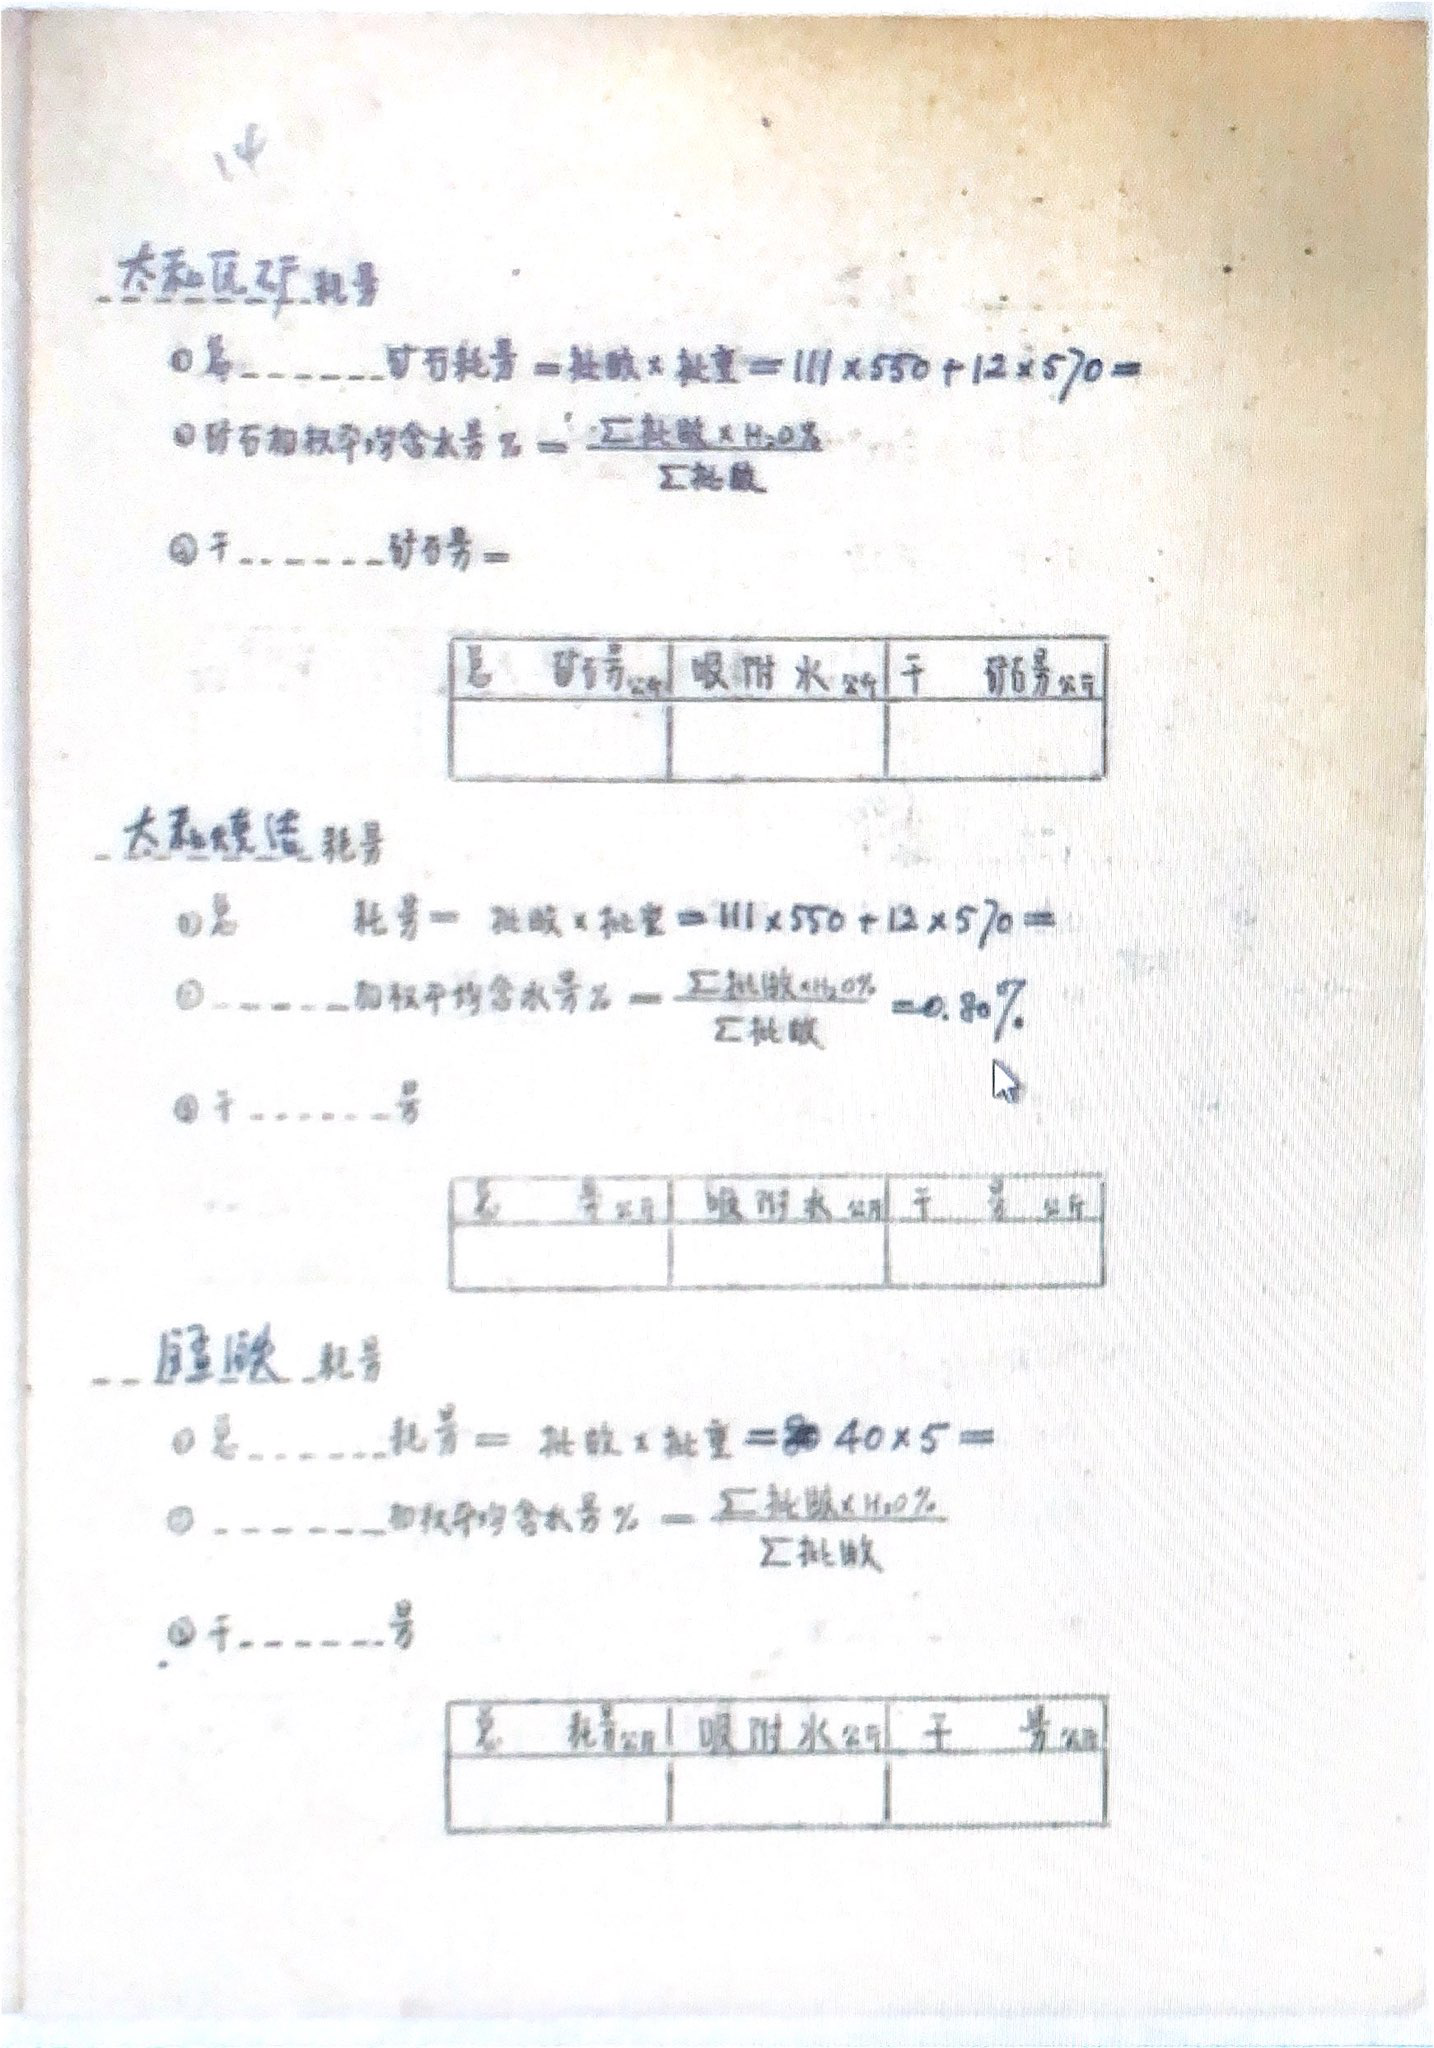 14
太和瓦矿耗量
①总______矿石耗量=批数×批重=111×550+12×570=
②矿石加权平均含水量%=Σ批数×H₂O%/Σ批数
③干______矿石量=
总 矿石量公斤 吸附水公斤 干 矿石量公斤
太和烧结耗量
①总 耗量= 批数×批重=111×550+12×570=
②______加权平均含水量%=Σ批数×H₂O%/Σ批数=0.80%
③干______量
总 量公斤 吸附水公斤 干 量公斤
耗量
①总______耗量= 批数×批重= 40×5=
②______加权平均含水量%=Σ批数×H₂O%/Σ批数
③干______量
总 耗量公斤 吸附水公斤 干 量公斤